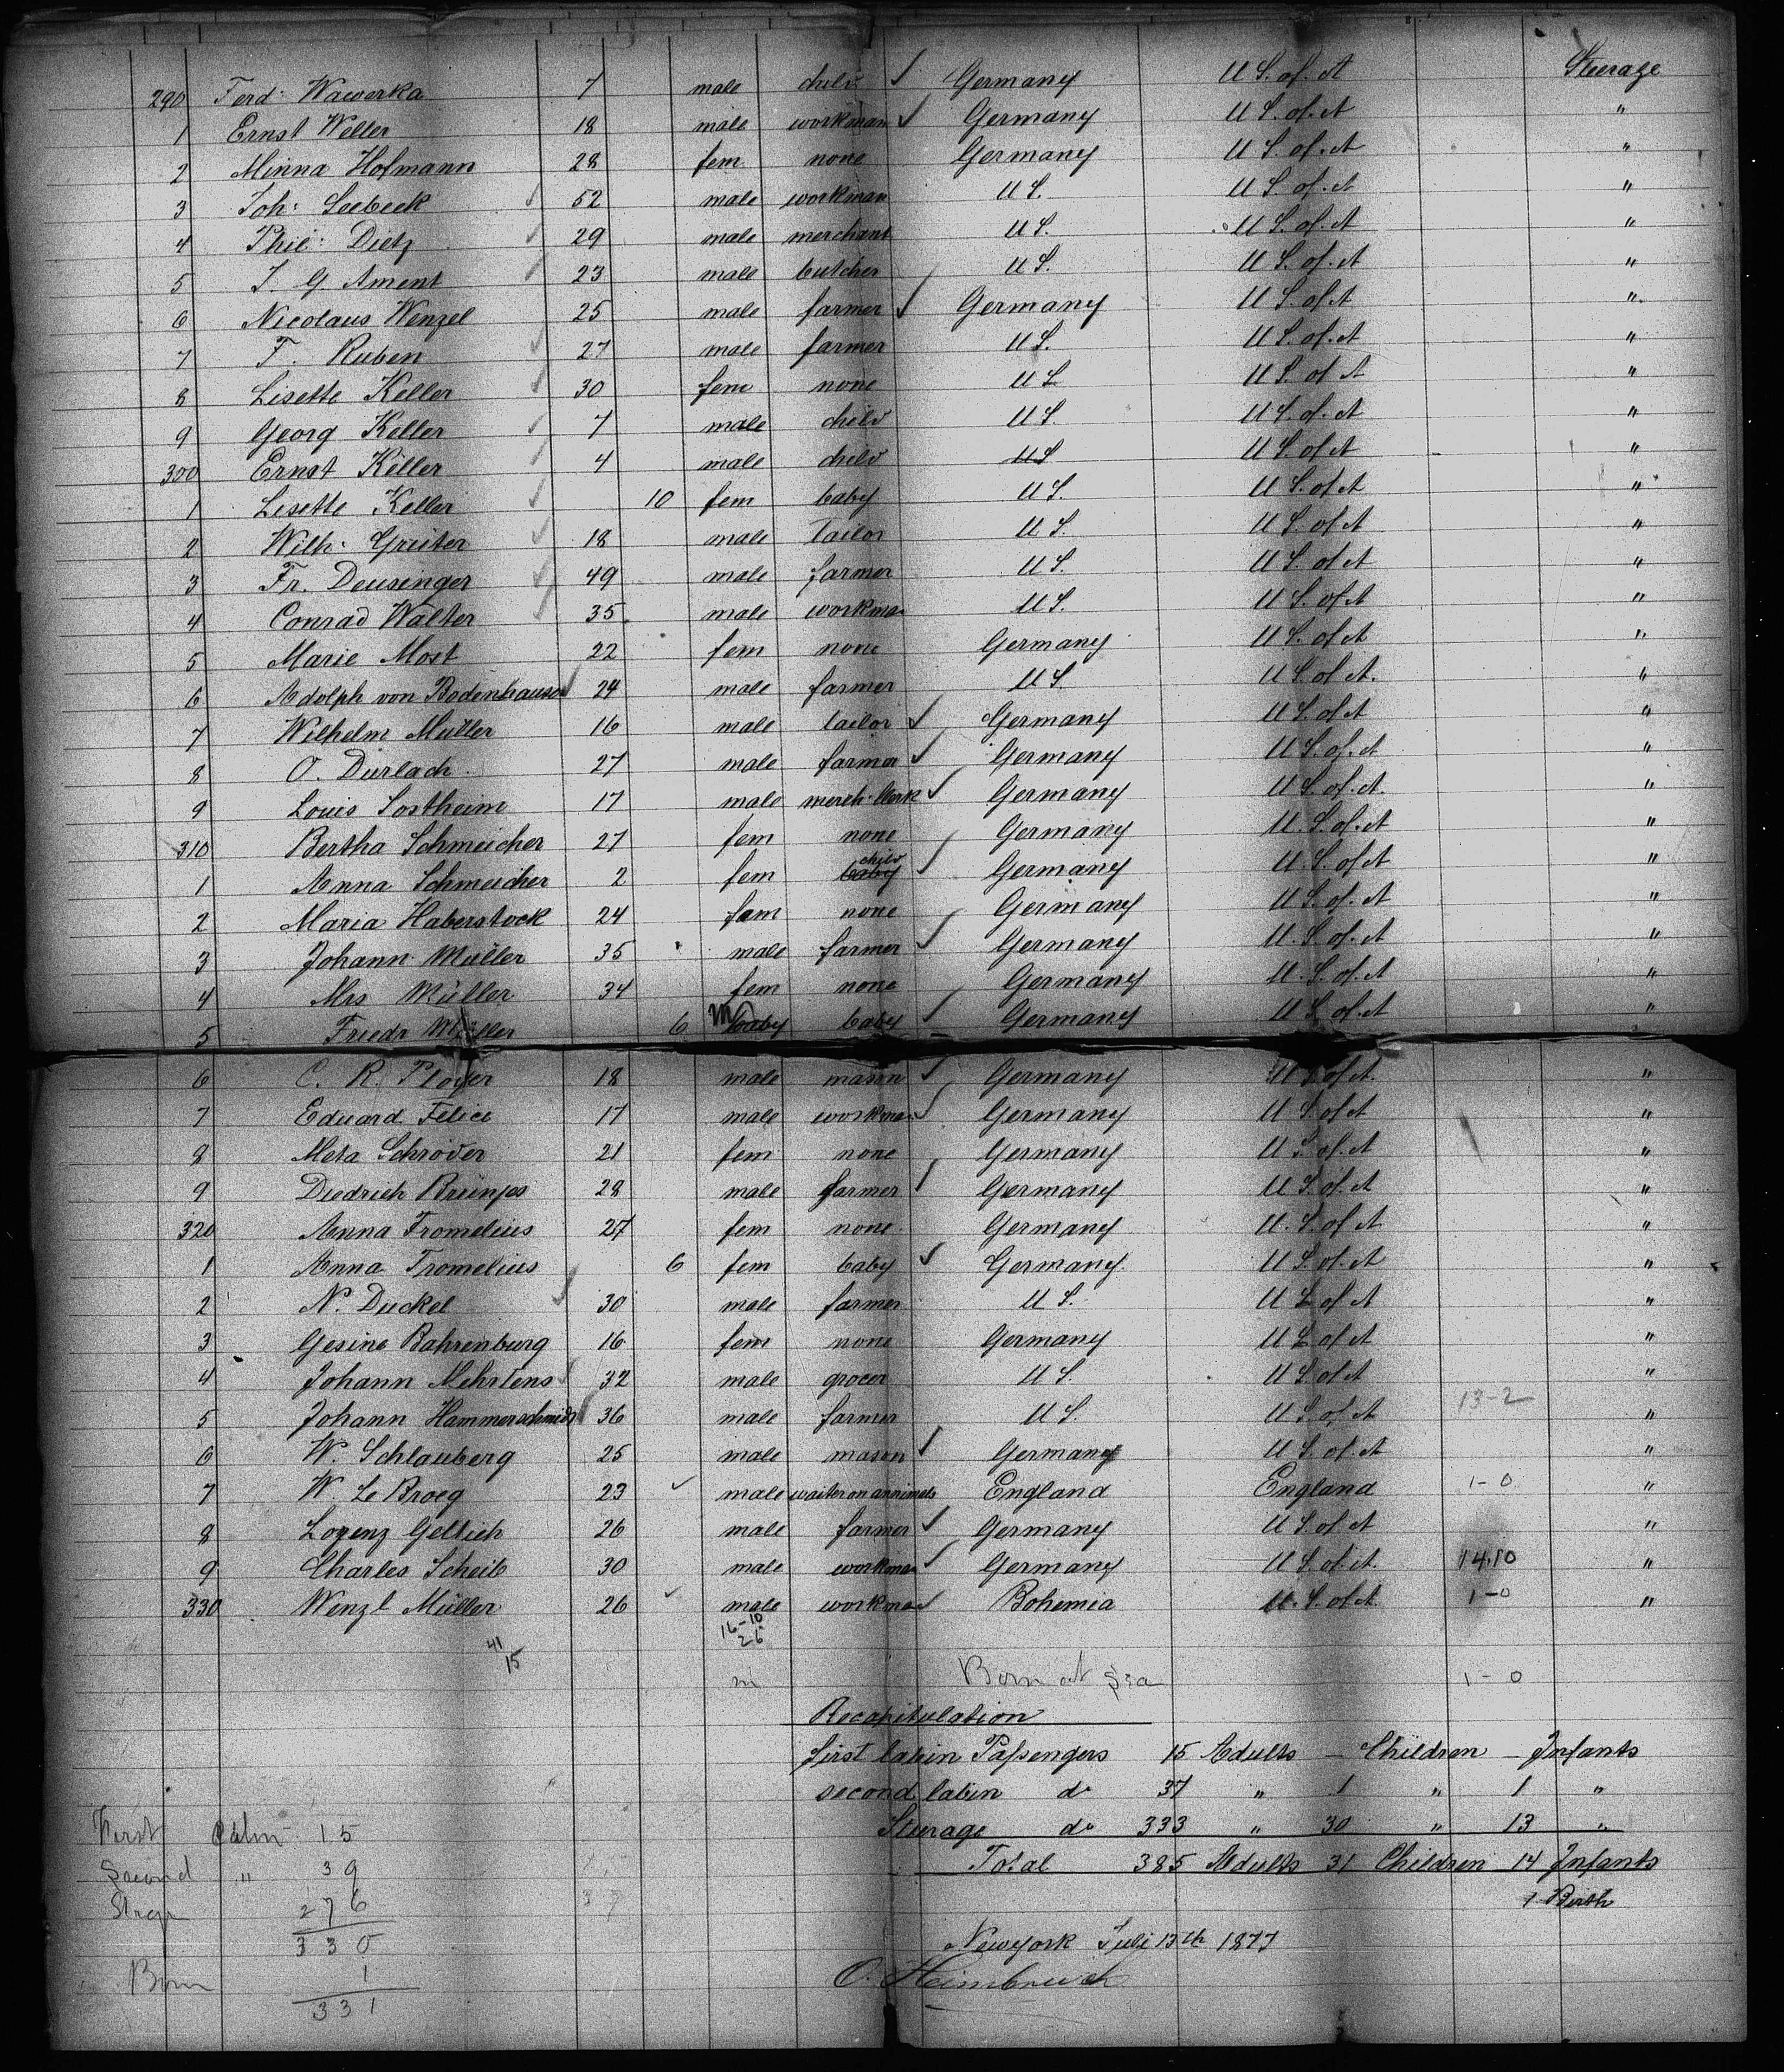 290 Ferd: Wawerka 7 male child ✓ Germany U S. of. A Steerage
1 Ernst Weller 18 male workman ✓ Germany U S. of. A "
2 Minna Hofmann 28 fem. none Germany U S. of. A "
3 Joh: Seebeck ✓ 52 male workman U S. U S. of. A "
4 Phil: Dietz ✓ 29 male merchant U S. U S. of A "
5 J. G. Ament ✓ 23 male butcher U S. U S. of. A "
6 Nicolaus Wenzel 25 male farmer ✓ Germany U S. of A "
7 F. Ruben ✓ 27 male farmer U S. U S. of. A "
8 Lisette Keller ✓ 30 fem none U S. U S. of A "
9 Georg Keller ✓ 7 male child U S. U S. of. A "
300 Ernst Keller ✓ 4 male child U S U S. of A "
1 Lisette Keller ✓ 10 fem baby U S. U S. of A "
2 Wilh: Greiter ✓ 18 male tailor U S. U S. of A "
3 Fr. Deusinger ✓ 49 male farmer U S. U S. of A "
4 Conrad Walter ✓ 35. male workman U S. U S. of A "
5 Marie Most 22 fem none Germany U S. of A "
6 Adolph von Bodenhausen ✓ 24 male farmer U S. U S. of A. "
7 Wilhelm Müller 16 male tailor ✓ Germany U S. of A "
8 O. Durlach 27 male farmer ✓ Germany U S. of. A "
9 Louis Sostheim 17 male merch. Clerk ✓ Germany U S. of. A "
310 Bertha Schmeicher 27 fem none Germany U. S. of. A "
1 Anna Schmeicher 2 fem child ✓ Germany U. S. of A "
2 Maria Haberstock 24 fem none Germany U S. of. A "
3 Johann Müller 35 male farmer ✓ Germany U. S. of. A "
4 Mrs Müller 34 fem none Germany U. S. of. A "
5 Friedr Müller 6 m baby baby ✓ Germany U S. of A "
6 C. R. Ployer 18 male mason ✓ Germany U S. of A. "
7 Eduard Felice 17 male workman ✓ Germany U S. of A "
8 Meta Schröder 21 fem none Germany U S. of. A "
9 Diedrich Brünjes 28 male farmer ✓ Germany U S. of. A "
320 Anna Fromelius 27 fem none Germany U. S. of A "
1 Anna Fromelius 6 fem baby ✓ Germany. U S. of. A "
2 N. Duckel ✓ 30 male farmer U S. U S. of A "
3 Gesine Bahrenburg 16 fem none Germany U S. of A "
4 Johann Mehrtens ✓ 32 male grocer U S. U S. of A "
5 Johann Hammerschmidt ✓ 36 male farmer U S. U S. of A 13-2 "
6 W. Schlauberg 25 male mason ✓ Germany U S. of. A "
7 W Le Broeg 23 ✓ male waiter on annimals England England 1-0 "
8 Lorenz Gellich 26 male farmer ✓ Germany U S. of A "
9 Charles Scheib 30 male workman ✓ Germany U S. of. A. 14.10 "
330 Wenzl Müller 26 ✓ male workman ✓ Bohemia U. S. of A. 1-0 "
16-10
26
41
15
m Born at Sea 1-0
Recapitulation
first Cabin Passengers 15 Adults — Children — Infants
second Cabin do 37 " 1 " 1 "
Steerage do 333 " 30 " 13 "
Total 385 Adults 31 Children 14 Infants
1 Birth
Newyork Juli 13th 1877
O. Heimbruch
First Cabin 15
Second " 39
Steer 276
330
Born 1
331
37